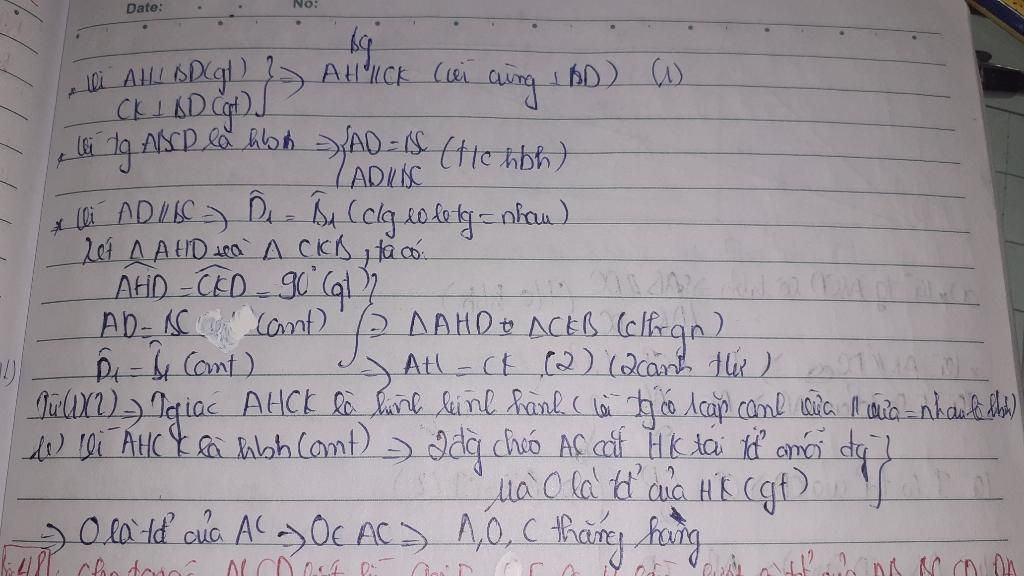 Date: No:
Bg
* Vì AH⊥BD(gt) } => AH//CK (vì cùng ⊥ BD) (1)
CK⊥BD(gt)
* Vì tg ABCD là hbh => { AD = BC (t/c hbh)
AD//BC
* Vì AD//BC => D̂1 = B̂1 (c/g so le tg = nhau)
Xét △AHD và △CKB, ta có:
AHD = CKD = 90° (gt)
AD = BC (cmt) } => △AHD = △CKB (ch-gn)
D̂1 = B̂1 (cmt) => AH = CK (2) (2 cạnh t/ứ)
Từ (1)(2) => Tgiác AHCK là hình bình hành (vì tg có 1 cặp cạnh vừa // vừa = nhau là hbh)
Vì AHCK là hbh (cmt) => 2 đg chéo AC cắt HK tại tđ mỗi đg }
Mà O là tđ của HK (gt)
=> O là tđ của AC => O∈ AC => A, O, C thẳng hàng